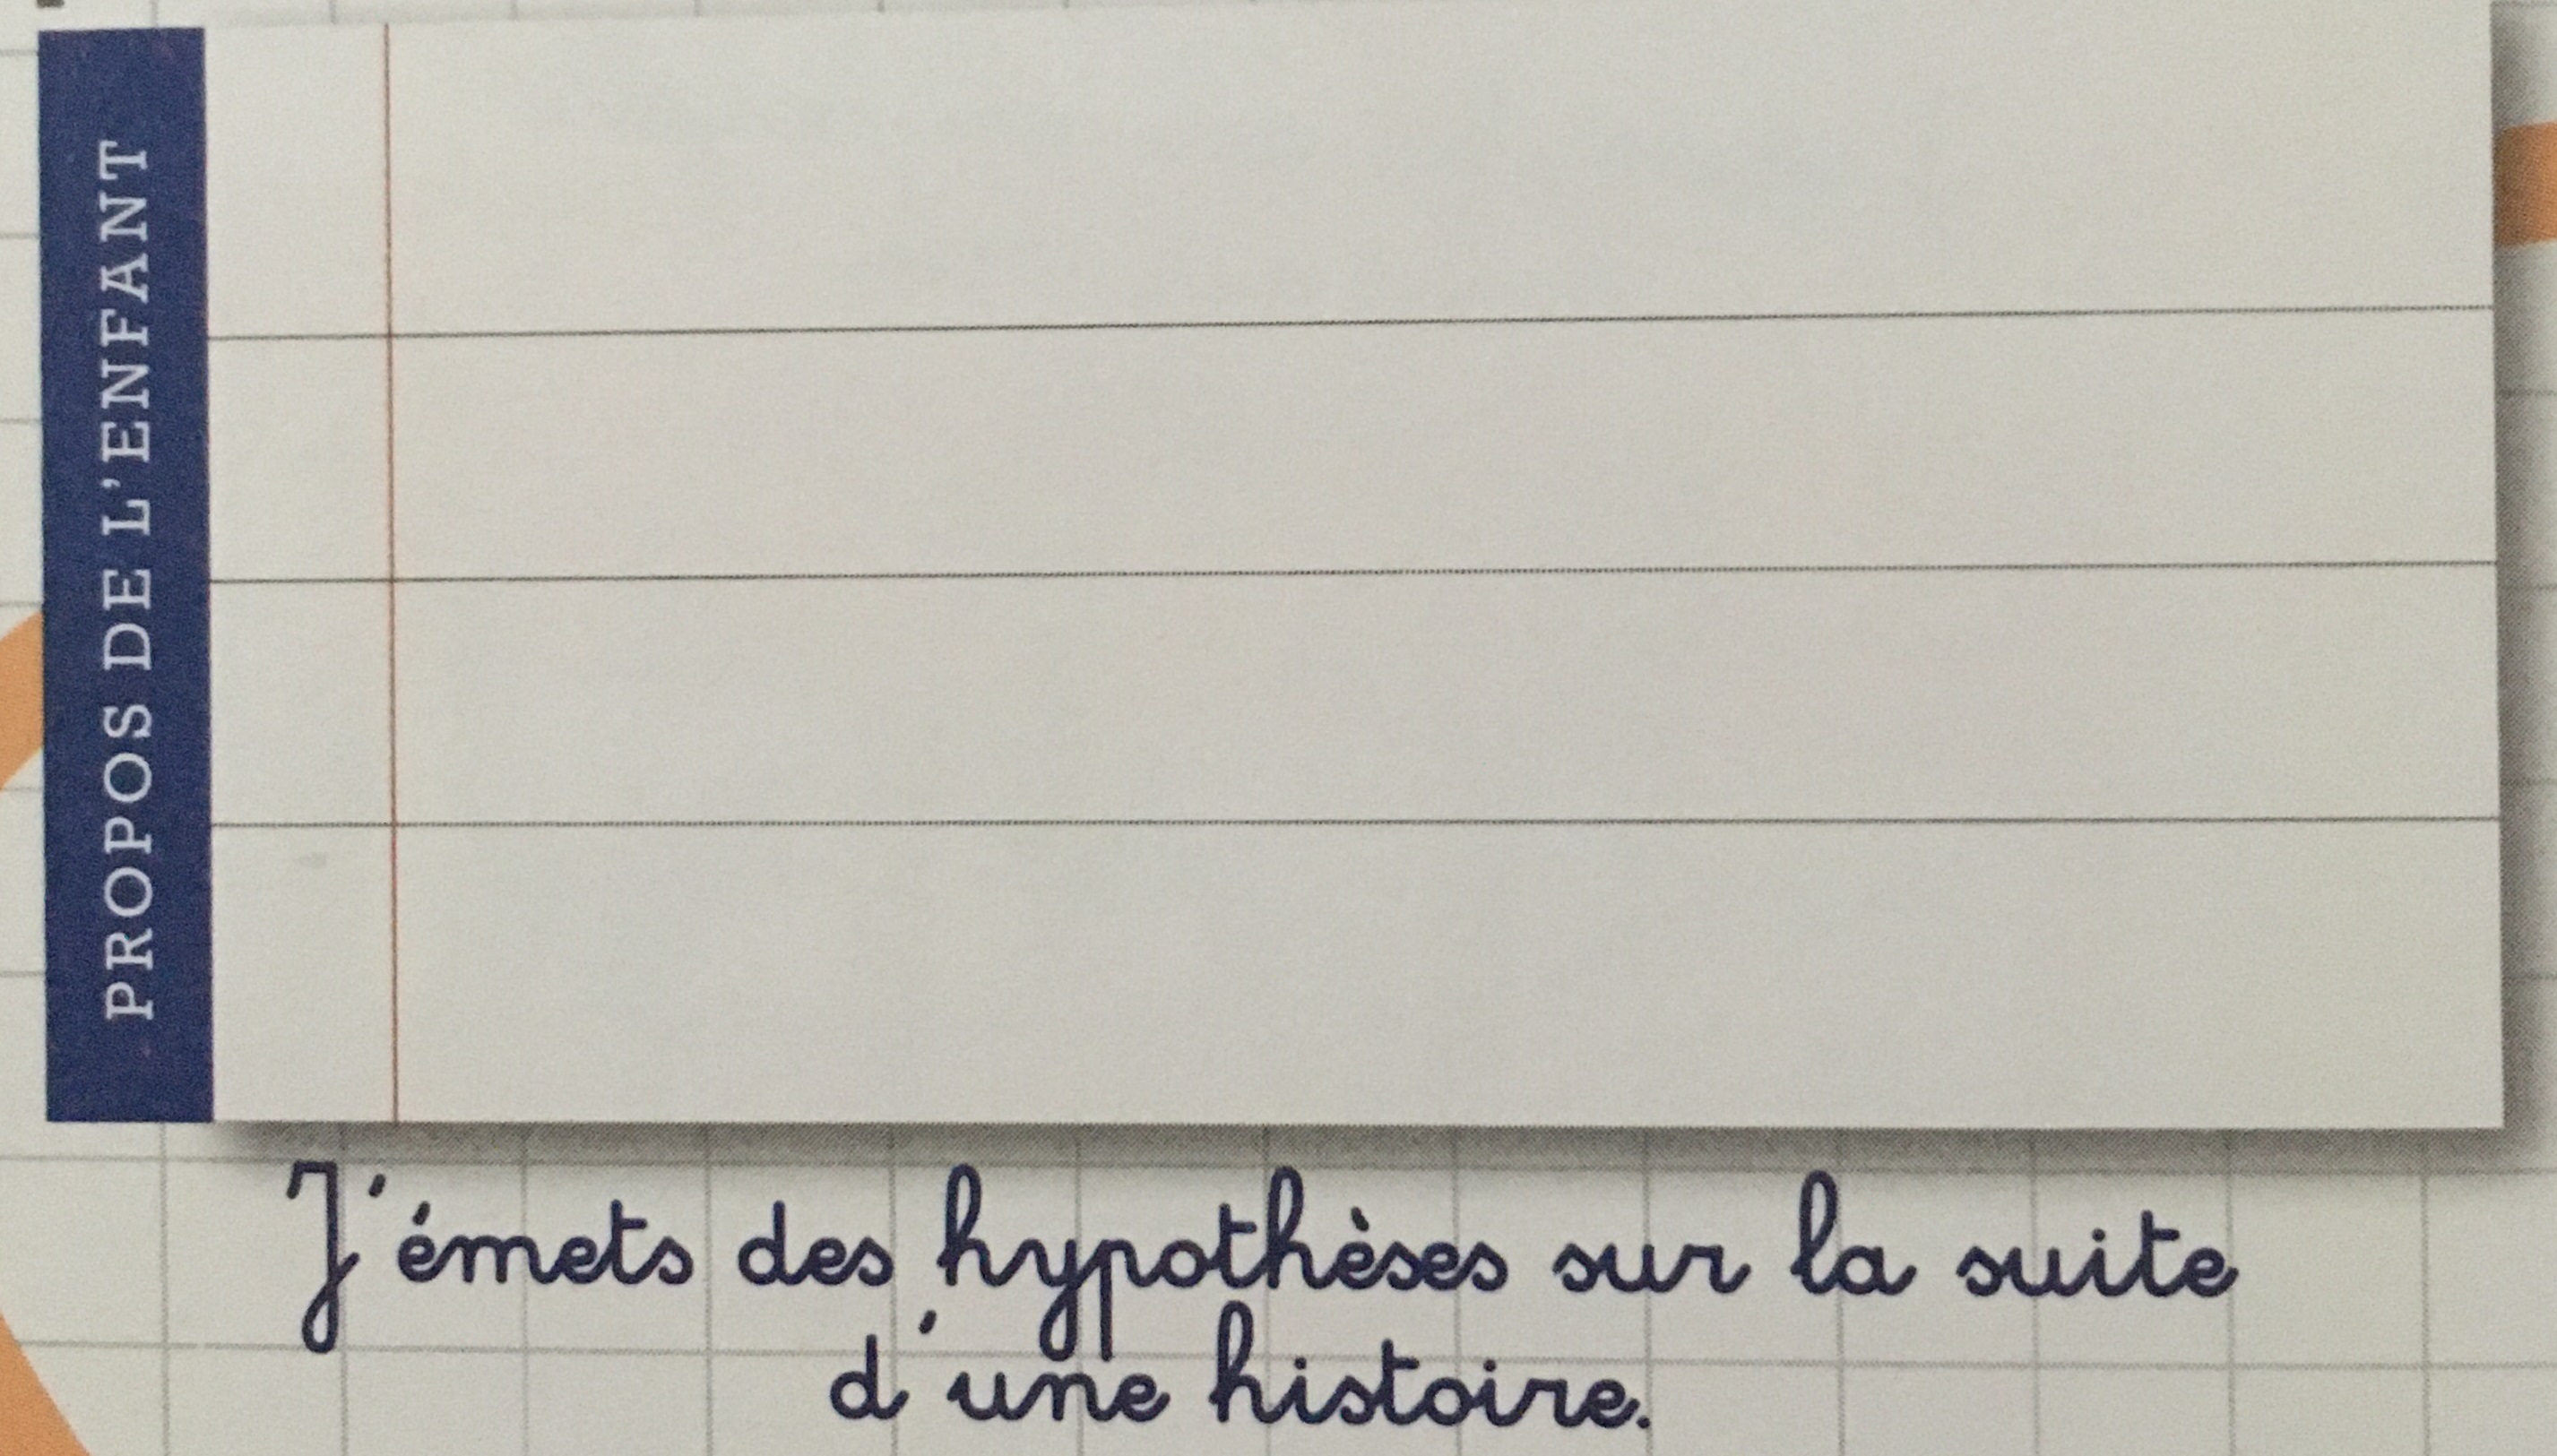 PROPOS DE L'ENFANT
J'émets des hypothèses sur la suite
d'une histoire.